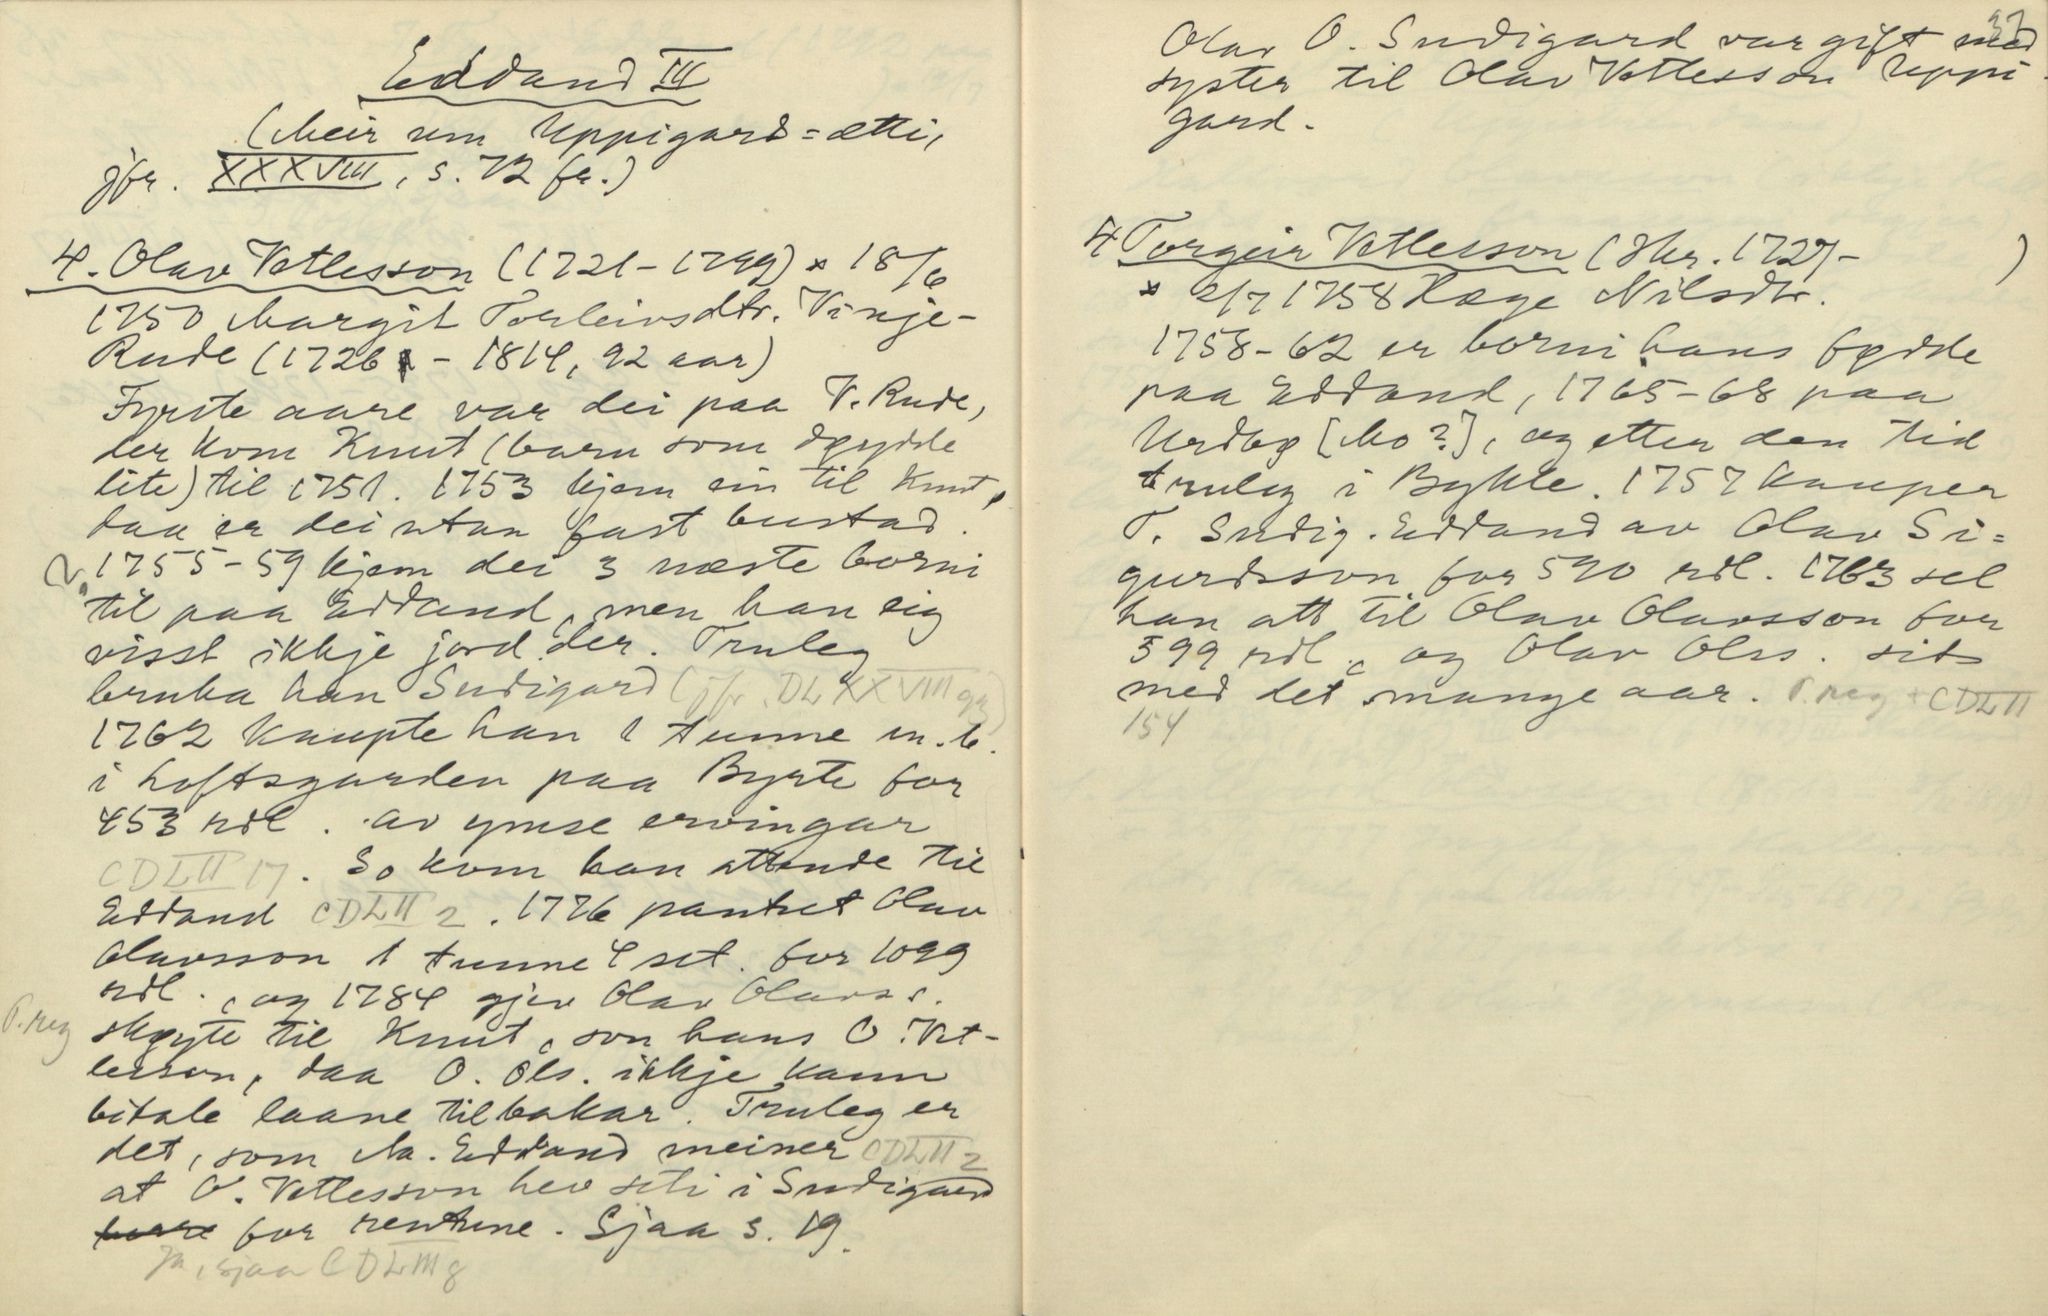 Eddand III
(Meir um Uppigard=ætti,
jfr. XXXVIII, s. 72 fr.)
4. Olav Vetlesson (1721-1799) × 18/6
1750 Margit Torleivsdtr. Vinje-
Rude (1726 - 1814, 92 aar)
Fyrste aare var dei paa V. Rude,
der kom Knut (barn som døydde
lite) til 1751. 1753 kjem ein til Knut,
daa er dei utan fast bustad.
? 1755-59 kjem dei 3 næste borni
til paa Eddand, men han eig
visst ikkje jord der. Truleg
bruka han Sudigard (jfr. DLXXVIII 92)
1762 kaupte han 1 tunne m.b.
i Loftsgarden paa Byrte for
453 rdl. av ymse ervingar
CDLII 17. So kom han attende til
Eddand CDLII 2. 1776 pantset Olav
Olavsson 1 tunne 4 set. for 1099
rdl., og 1784 gjev Olav Olavss.
P.reg skøyte til Knut, son hans O. Vet-
lesson, daa O. Ols. ikkje kann
bitale laane tilbakar. Truleg er
det, som M. Eddand meiner CDLII 2
at O. Vetlesson hev seti i Sudigard
bare for rentune. Sjaa s. 19.
Ja, sjaa CDLIII 8
37
Olav O. Sudigard var gift med
syster til Olav Vetlesson Uppi-
gard.
4 Torgeir Vetlesson (Skr. 1727- )
× 2/7 1758 Hæge Nilsdtr.
1758-62 er borni hans fødde
paa Eddand, 1765-68 paa
Urdbø [Mo?], og etter den tid
truleg i Bykle. 1757 kauper
T. Sudig. Eddand av Olav Si=
gurdsson for 590 rdl. 1763 sel
han att til Olav Olavsson for
599 rdl., og Olav Olss. sit
med det mange aar. P.reg + CDLII
154